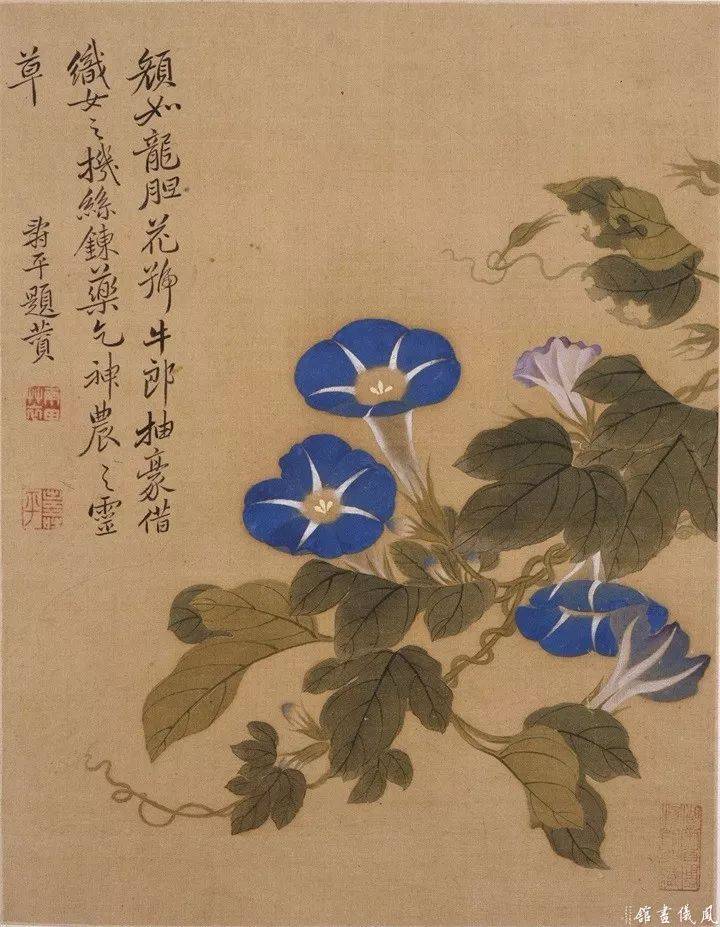 顏如龍胆花號牛郎抽豪借
織女之機絲鍊藥乞神農之靈
草
壽平題贊
鳳儀畫館